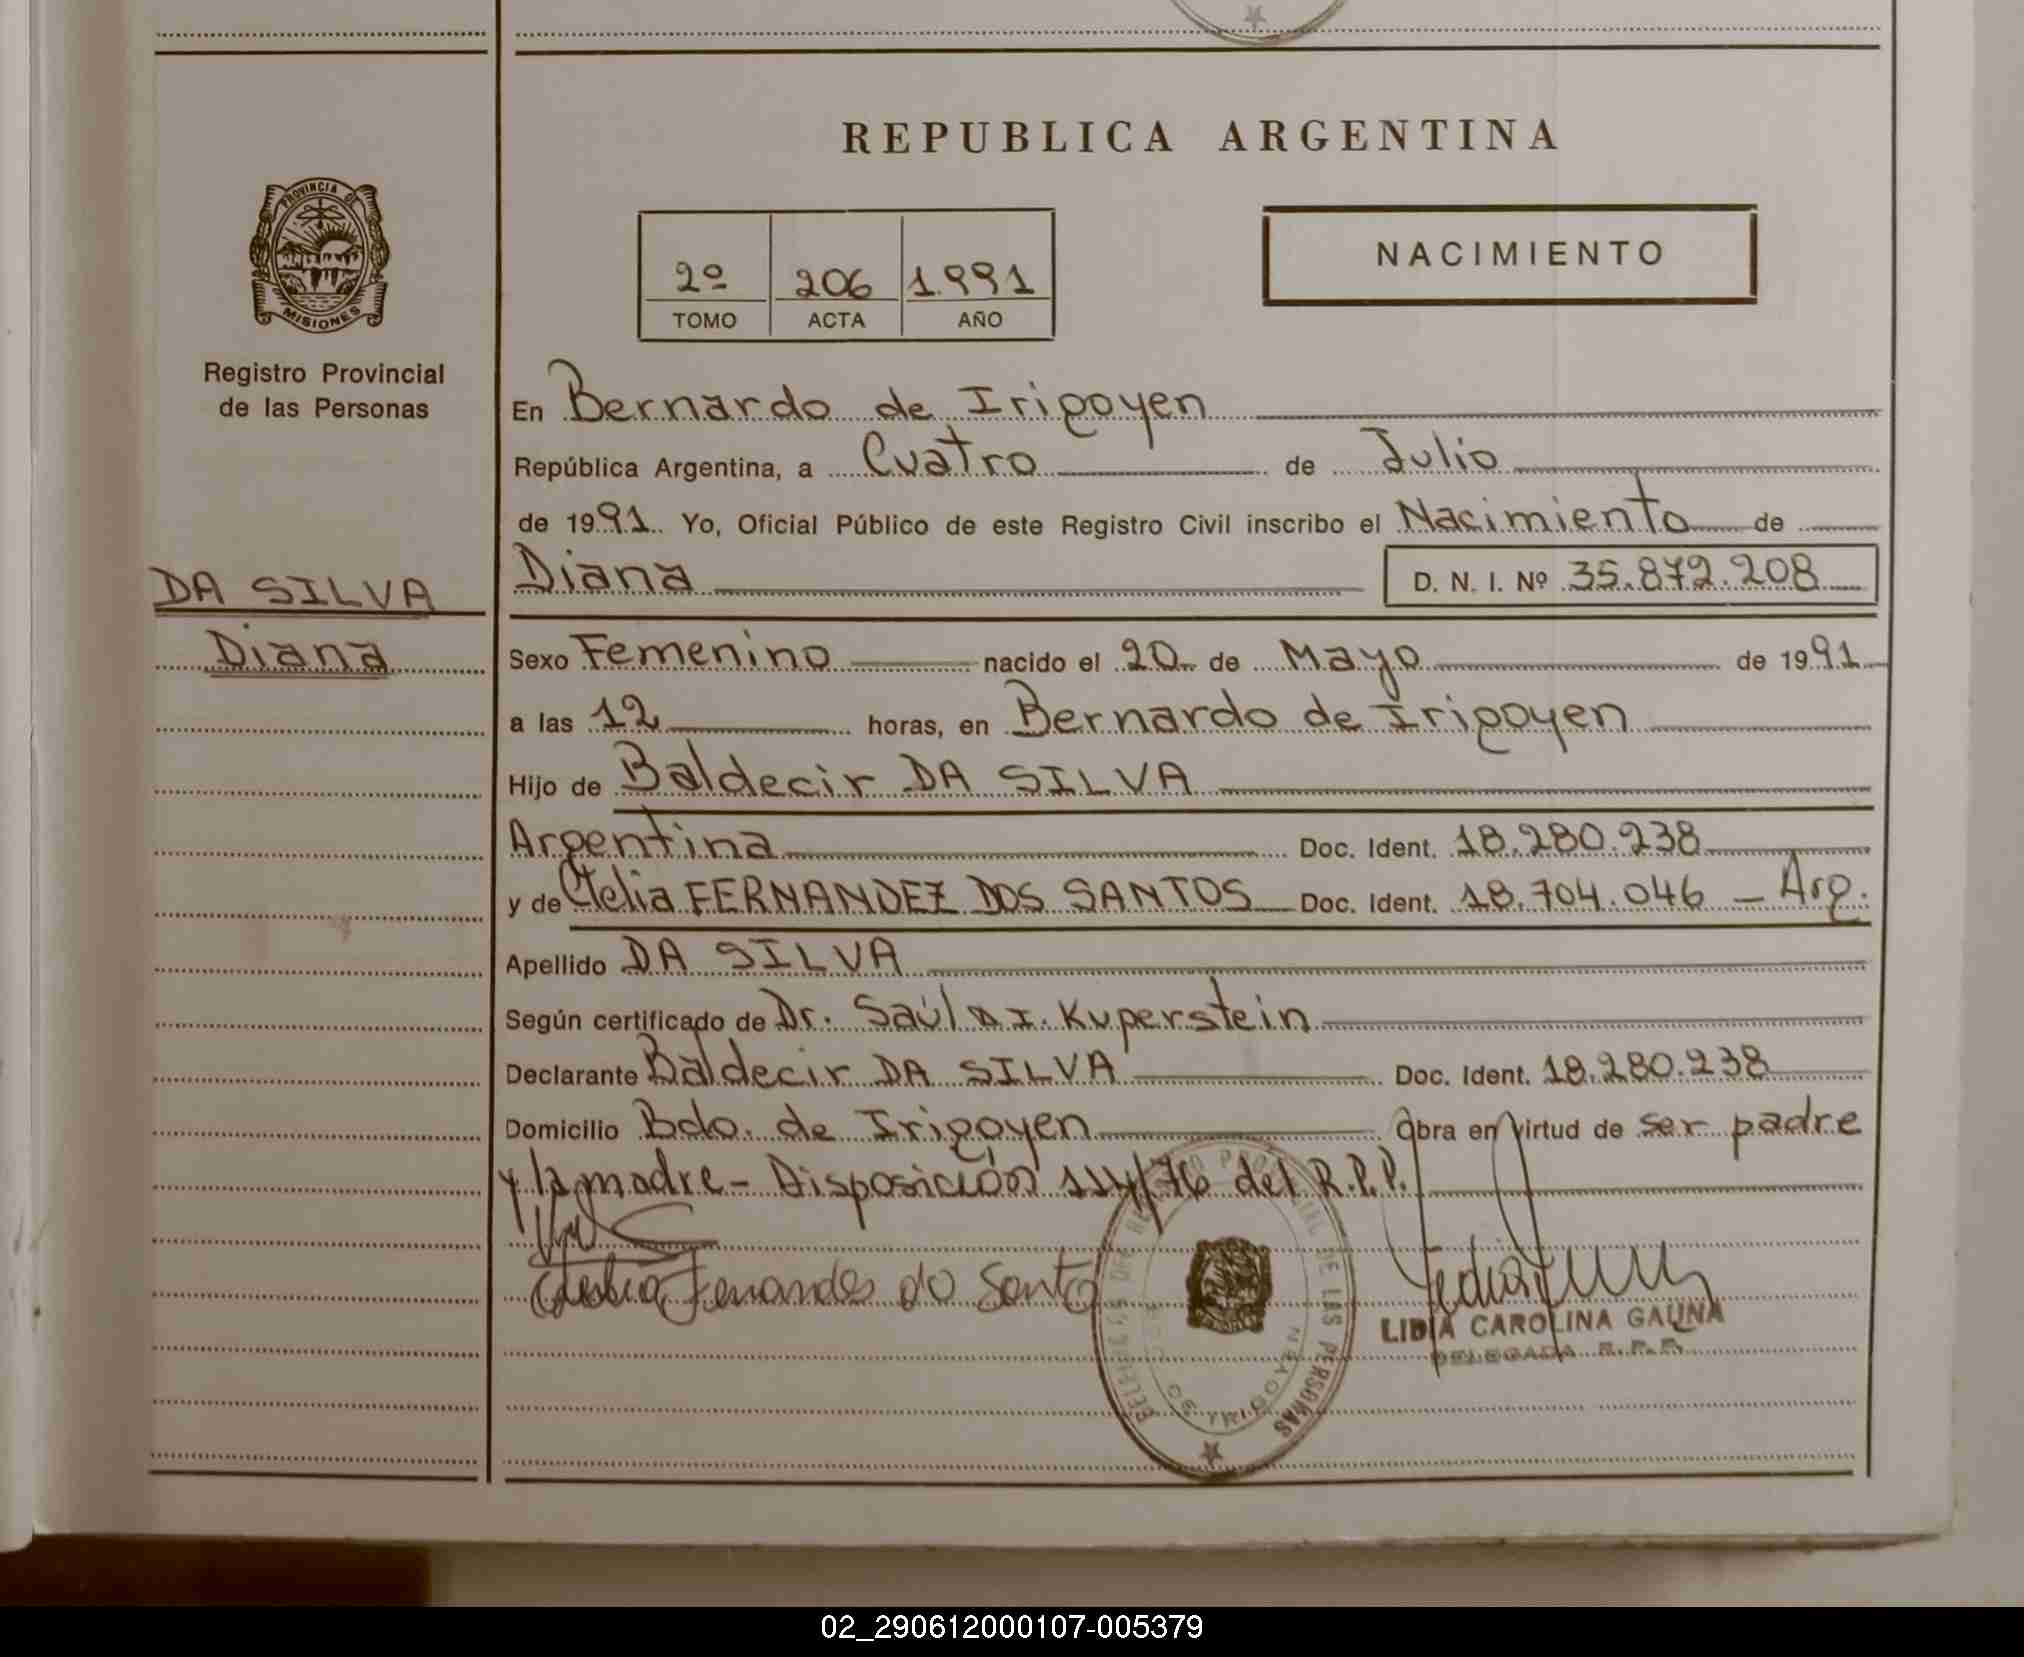 REPUBLICA ARGENTINA
PROVINCIA DE
MISIONES
Registro Provincial
de las Personas
2º 206 1.991
TOMO ACTA AÑO
NACIMIENTO
En Bernardo de Irigoyen
República Argentina, a Cuatro de Julio
de 1991. Yo, Oficial Público de este Registro Civil inscribo el Nacimiento de
DA SILVA
Diana
Diana D. N. I. Nº 35.872.208
Sexo Femenino nacido el 20 de Mayo de 1991
a las 12 horas, en Bernardo de Irigoyen
Hijo de Baldecir DA SILVA
Argentina Doc. Ident. 18.280.238
y de FERNANDEZ DOS SANTOS Doc. Ident. 18.704.046 – Arg.
Apellido DA SILVA
Según certificado de Dr. Saúl I. Kuperstein
Declarante Baldecir DA SILVA Doc. Ident. 18.280.238
Domicilio Bdo. de Irigoyen Obra en virtud de ser padre
y la madre – Disposición 114/76 del R.P.P.
Fernandes do Santo
LIDIA CAROLINA GAUNA
DELEGADA R.P.P.
DE LAS PERSONAS
DE IRIGOYEN
02_290612000107-005379